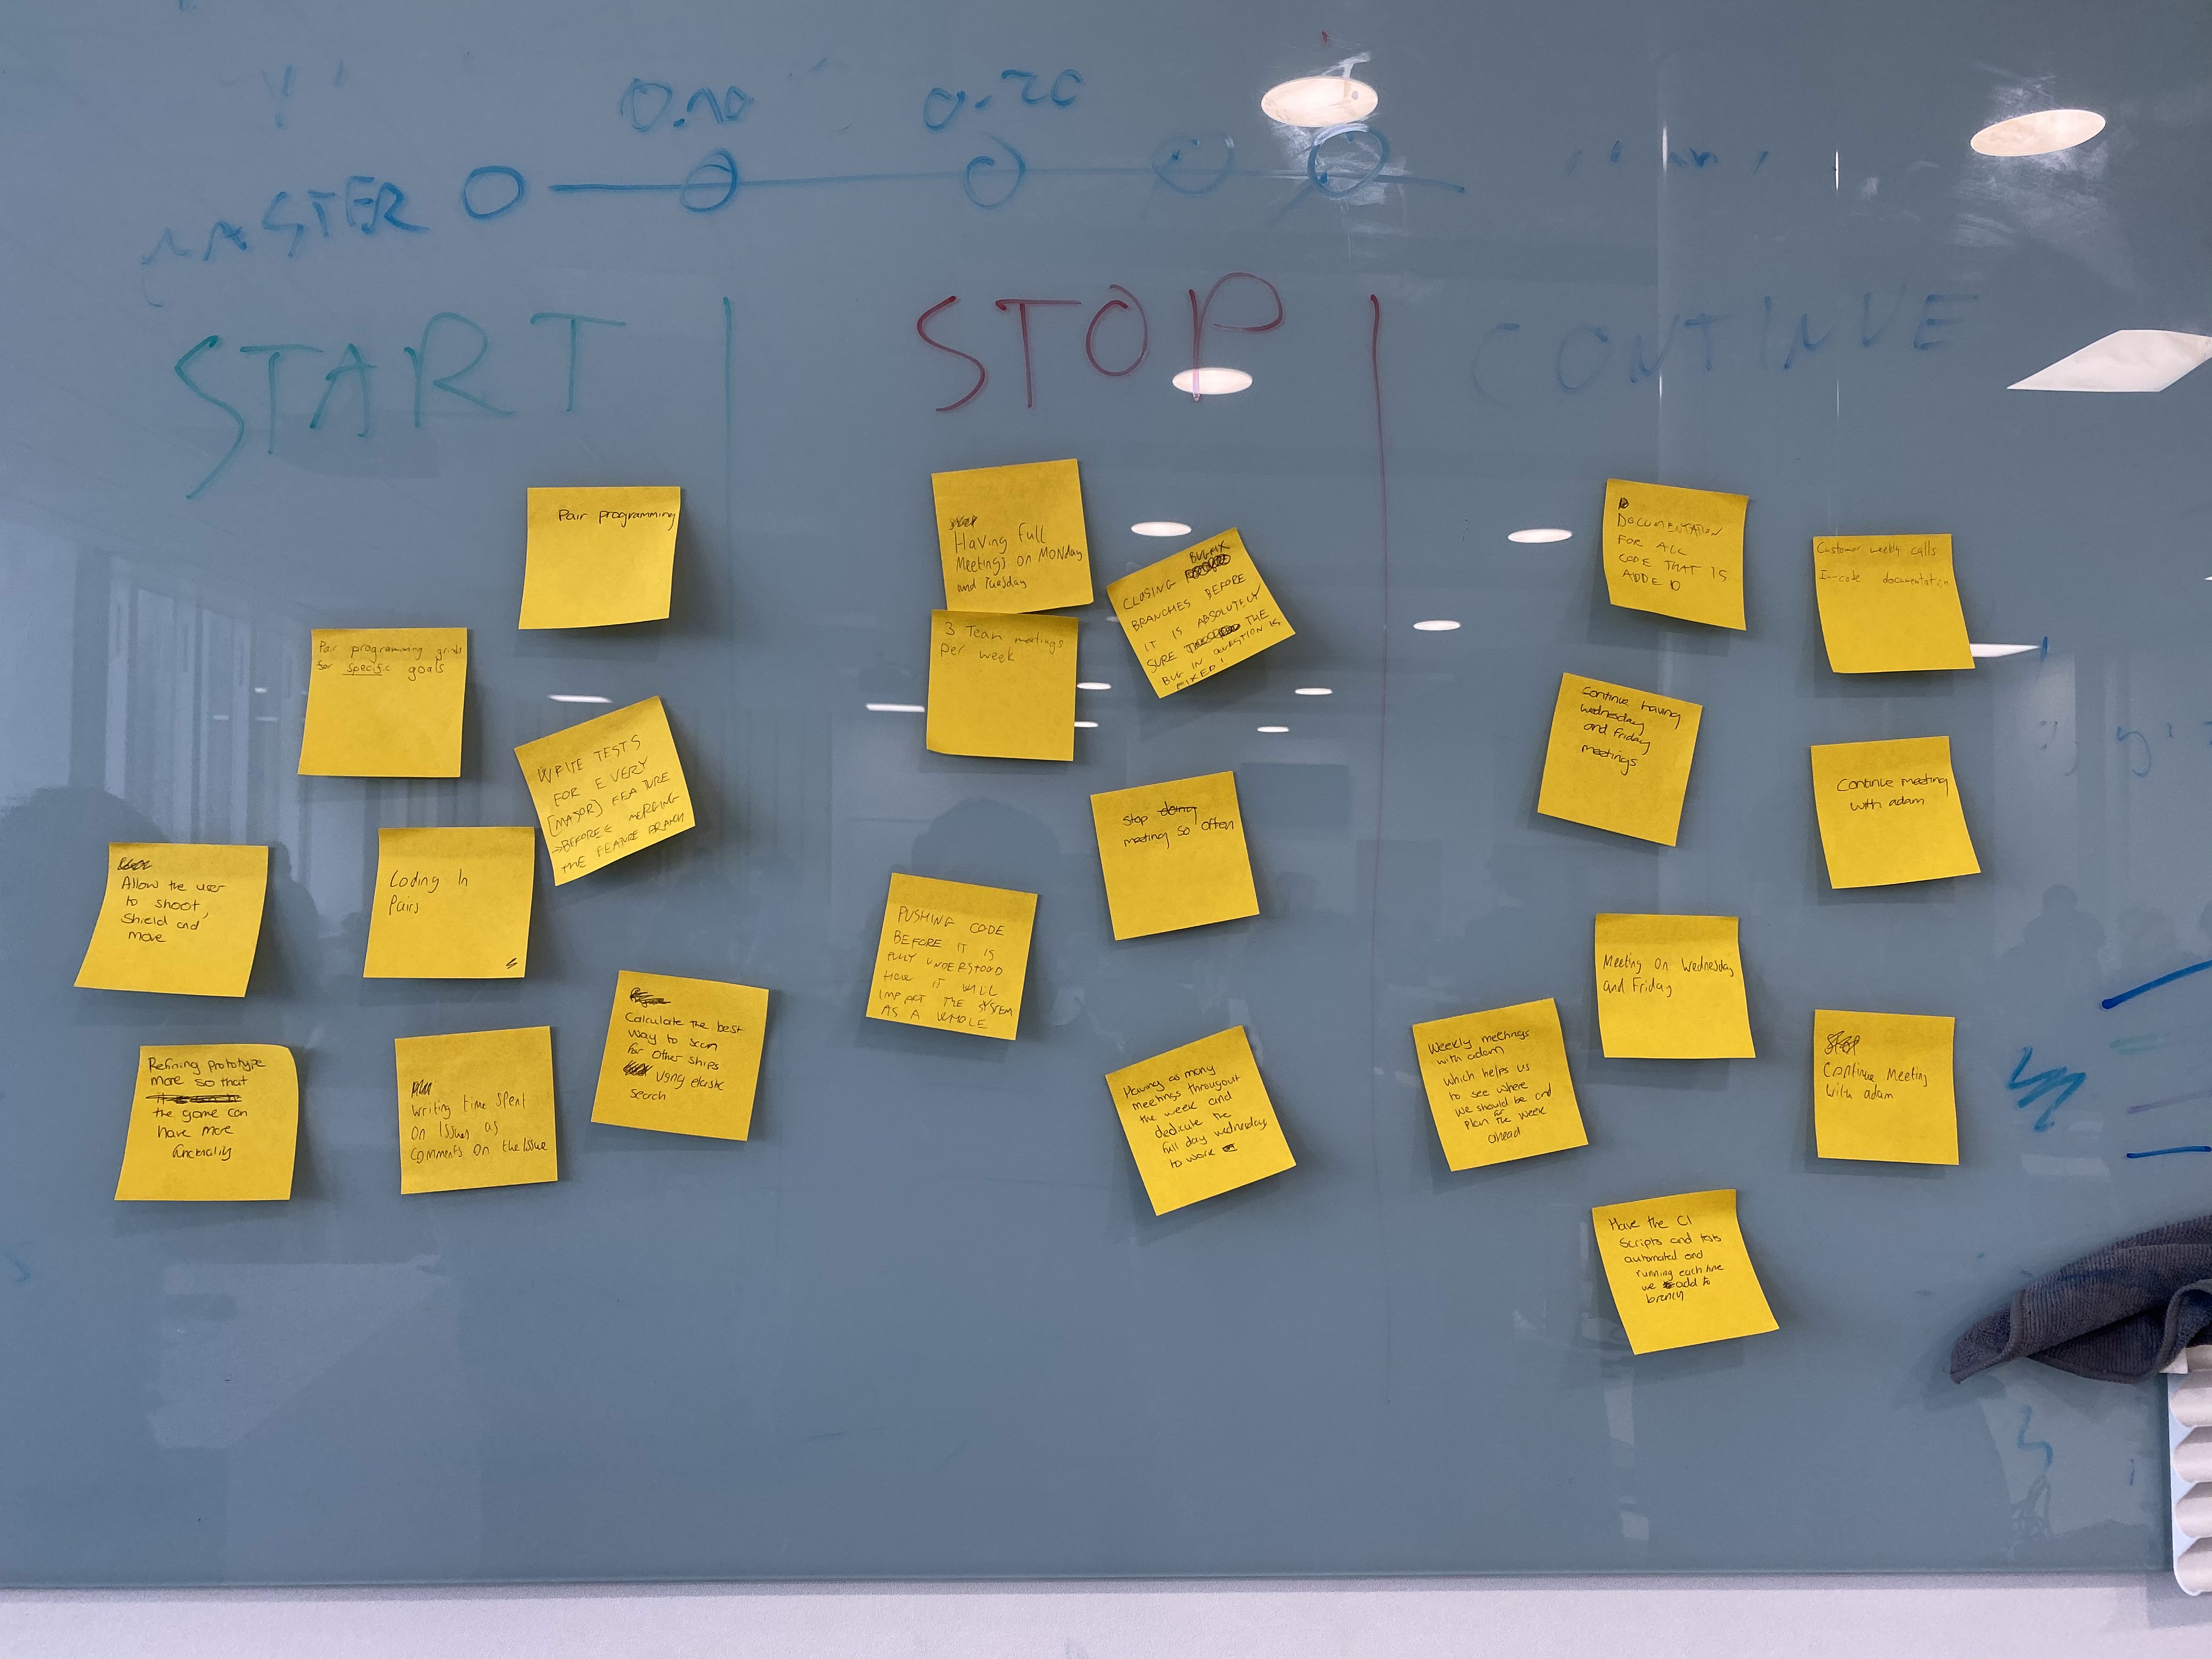 0.10
0.20
MASTER
START
STOP
CONTINUE
Pair programming
Pair programming grids
for specific goals
WRITE TESTS
FOR EVERY
[MAJOR] FEATURE
→BEFORE MERGING
THE FEATURE BRANCH
Allow the user
to shoot,
shield and
move
Coding In
Pairs
Refining prototype
more so that
the game can
have more
functionality
Writing time spent
On Issues as
comments on the Issue
Calculate the best
way to scan
for other ships
using elastic
search
Having full
Meetings on Monday
and Tuesday
3 Team meetings
per week
CLOSING BUGFIX
BRANCHES BEFORE
IT IS ABSOLUTELY
SURE THE
BUG IN QUESTION IS
FIXED!
Stop doing
meeting so often
PUSHING CODE
BEFORE IT IS
FULLY UNDERSTOOD
HOW IT WILL
IMPACT THE SYSTEM
AS A WHOLE
Having as many
meetings througout
the week and
dedicate the
full day wednesday
to work
DOCUMENTATION
FOR ALL
CODE THAT IS
ADDED
Customer weekly calls
In-code documentation
Continue having
wednesday
and friday
meetings
Continue meeting
with adam
Meeting On Wednesday
and Friday
Weekly meetings
with adam
which helps us
to see where
we should be and
plan for the week
ahead
Continue Meeting
with adam
Have the CI
Scripts and tests
automated and
running each time
we add to
branch